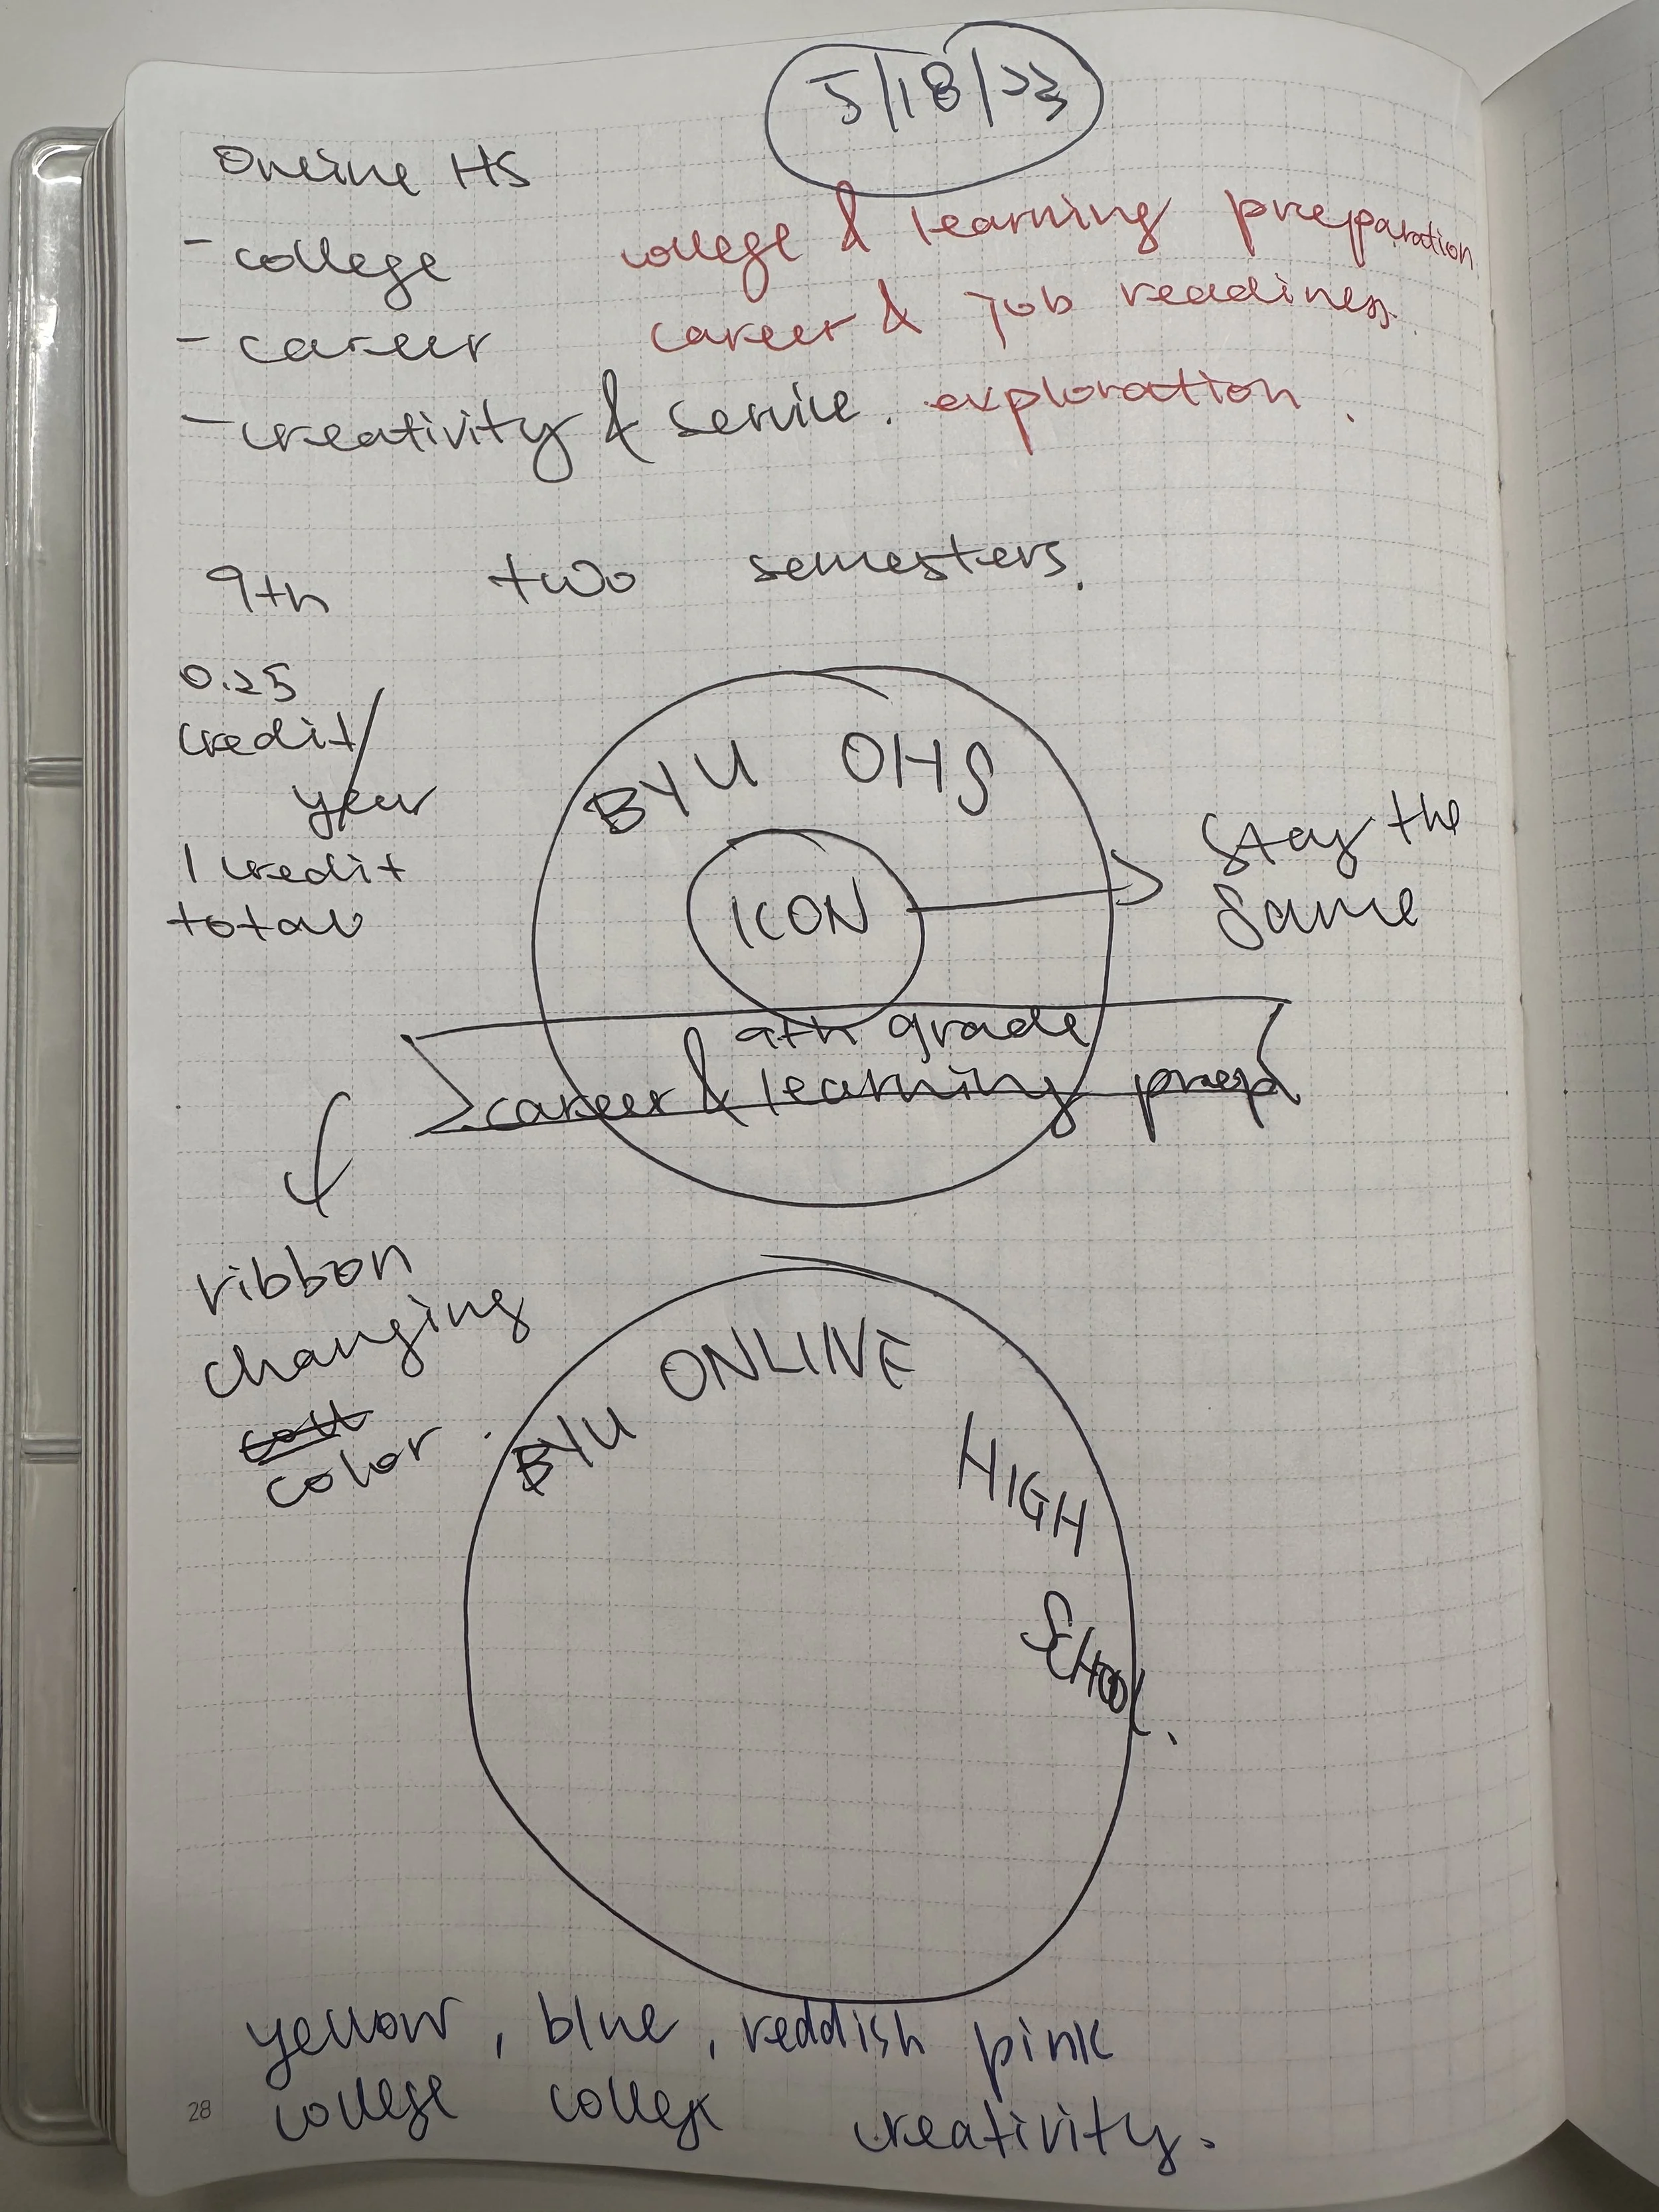 5/18/23
Online HS
- college
college & learning preparation
- career
career & job readiness.
- creativity & service.
exploration.
9th two semesters.
0.25
credit/
year
1 credit
total
BYU OHS
ICON
Stay the
same
9th grade
career & learning prep
ribbon
changing
color.
BYU ONLINE
HIGH
SCHOOL.
yellow, blue, reddish pink
college college creativity.
28